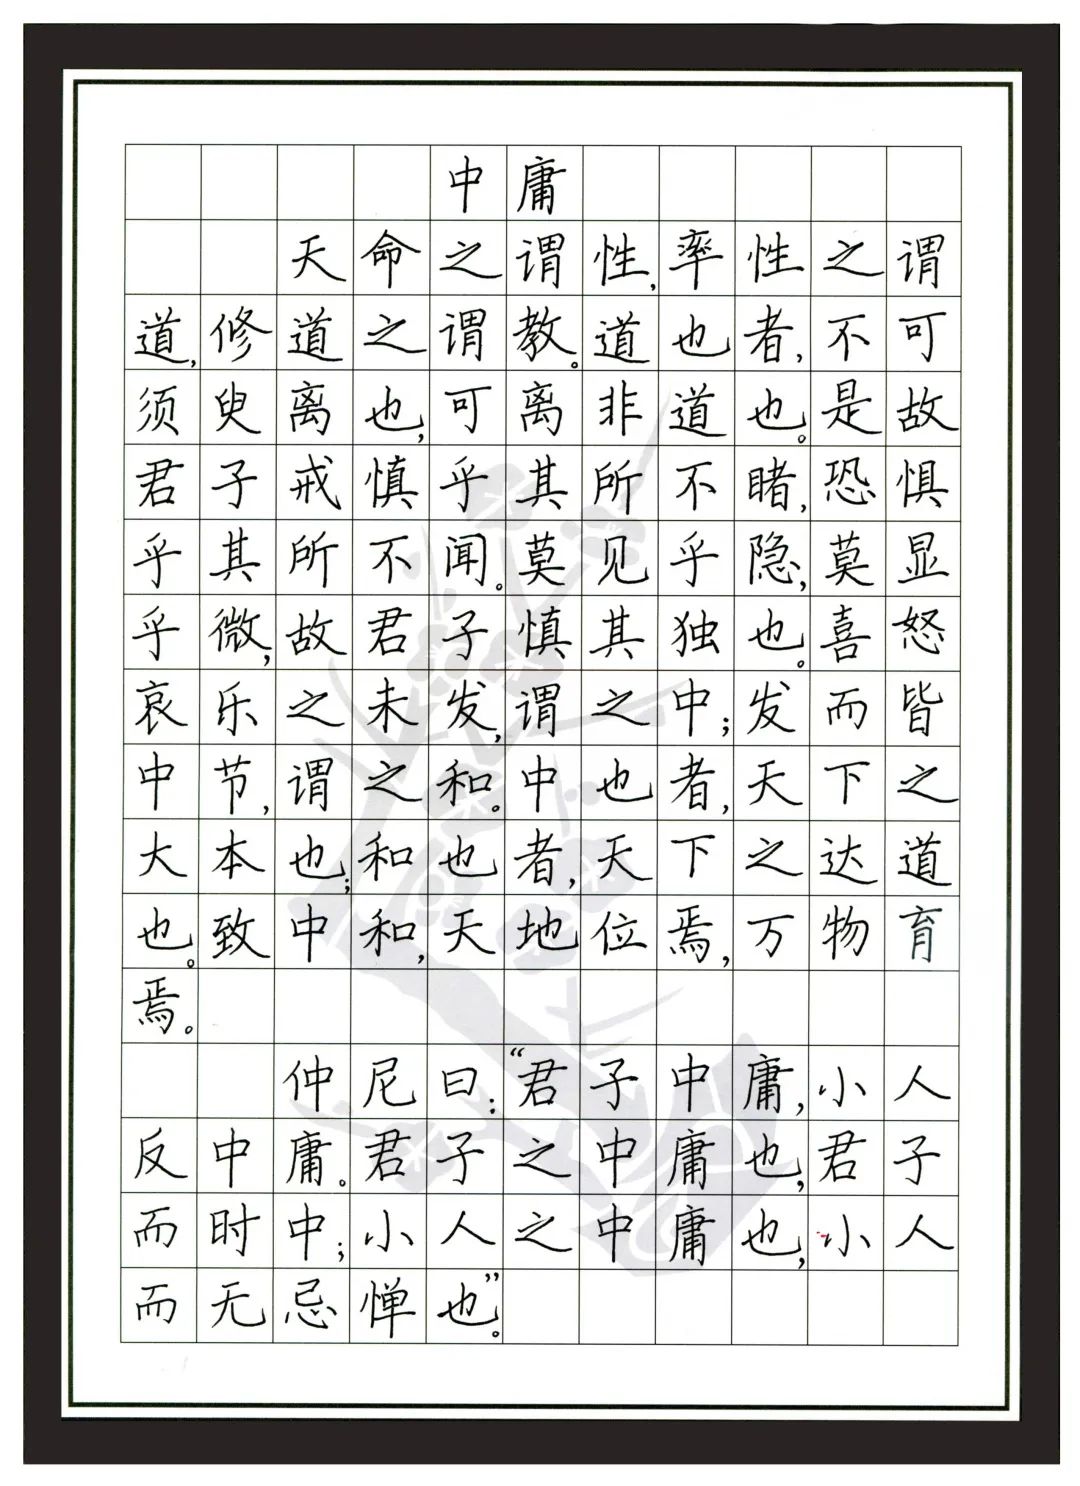 中庸
天命之谓性,率性之谓
道,修道之谓教。道也者,不可
须臾离也,可离非道也。是故
君子戒慎乎其所不睹,恐惧
乎其所不闻。莫见乎隐,莫显
乎微,故君子慎其独也。喜怒
哀乐之未发,谓之中;发而皆
中节,谓之和。中也者,天下之
大本也;和也者,天下之达道
也。致中和,天地位焉,万物育
焉。
仲尼曰:“君子中庸,小人
反中庸。君子之中庸也,君子
而时中;小人之中庸也,小人
而无忌惮也。”